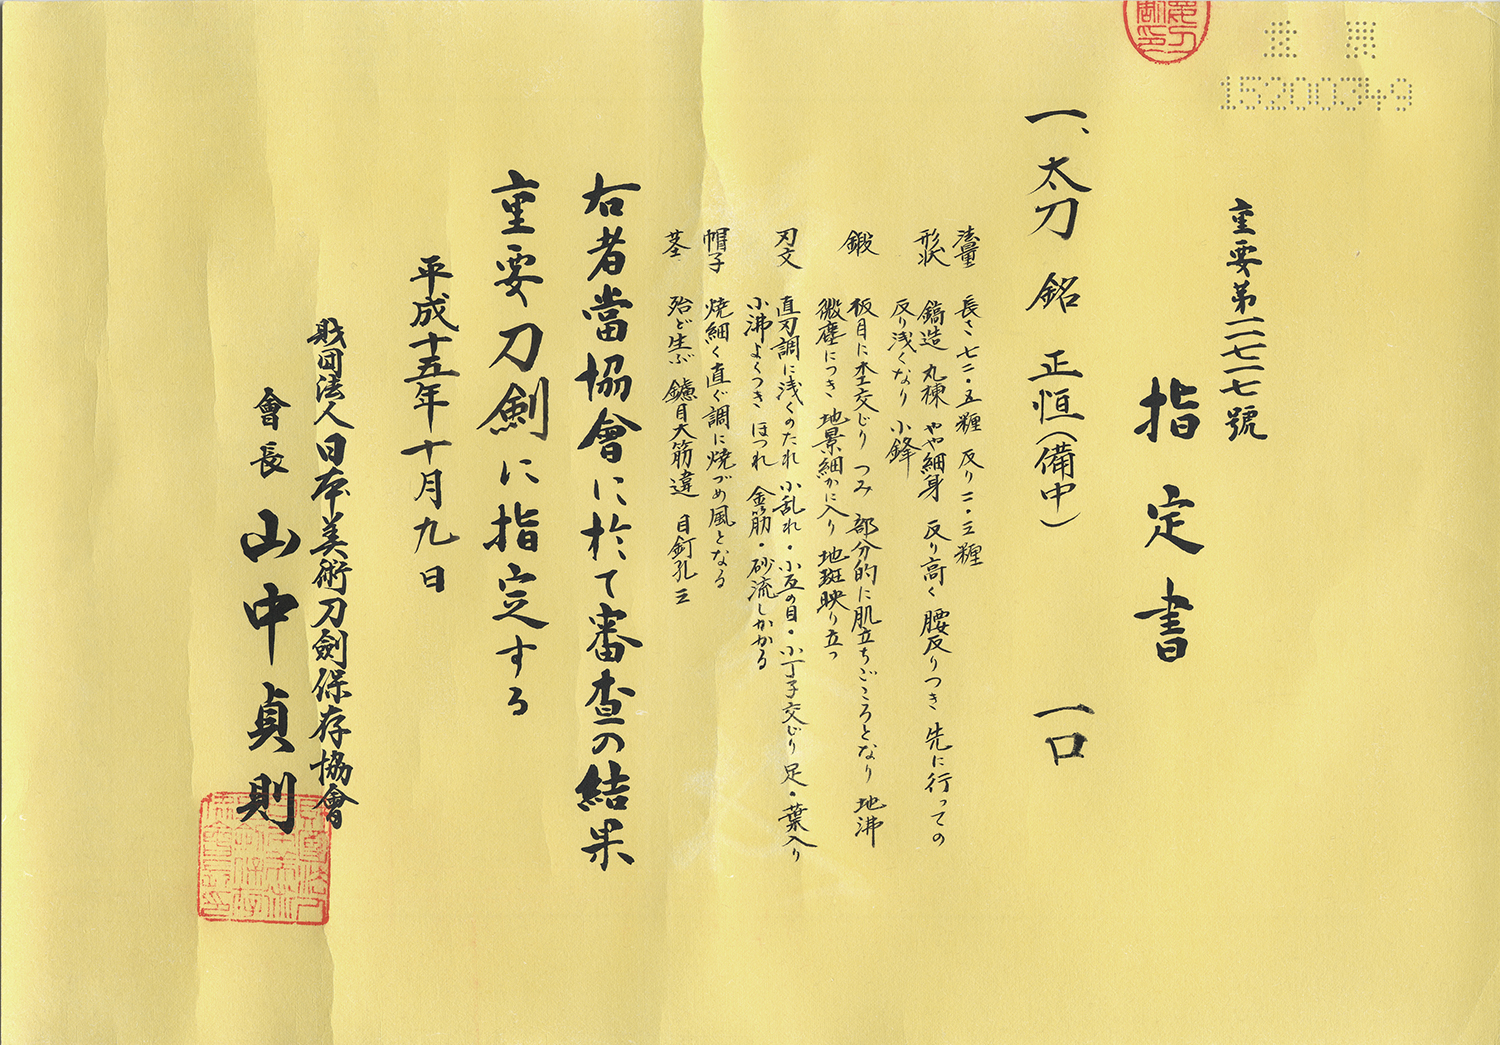 重要第一一七一七號
指定書
一、太刀 銘 正恒(備中) 一口
法量 長さ七二・五糎 反り二・三糎
形状 鎬造 丸棟 やや細身 反り高く 腰反りつき 先に行っての
反り浅くなり 小鋒
鍛 板目に杢交じり つみ 部分的に肌立ちごころとなり 地沸
微塵につき 地景細かに入り 地斑映り立つ
刃文 直刃調に浅くのたれ 小乱れ・小互の目・小丁子交じり 足・葉入り
小沸よくつき ほつれ 金筋・砂流しかかる
帽子 焼細く直ぐ調に焼づめ風となる
茎 殆ど生ぶ 鑢目大筋違 目釘孔三
右者當協會に於て審査の結果
重要刀剣に指定する
平成十五年十月九日
財団法人日本美術刀剣保存協會
會長 山中貞則
15200349